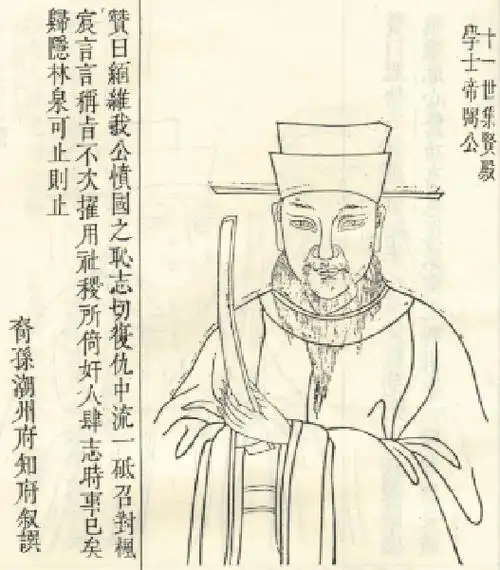 十一世集賢殿
學士帝公
贊曰緬維我公憤國之恥志切復仇中流一砥召對楓
宸言言稱旨不次擢用社稷所倚奸人肆志時事已矣
歸隱林泉可止則止
裔孫潮州府知府叙譔